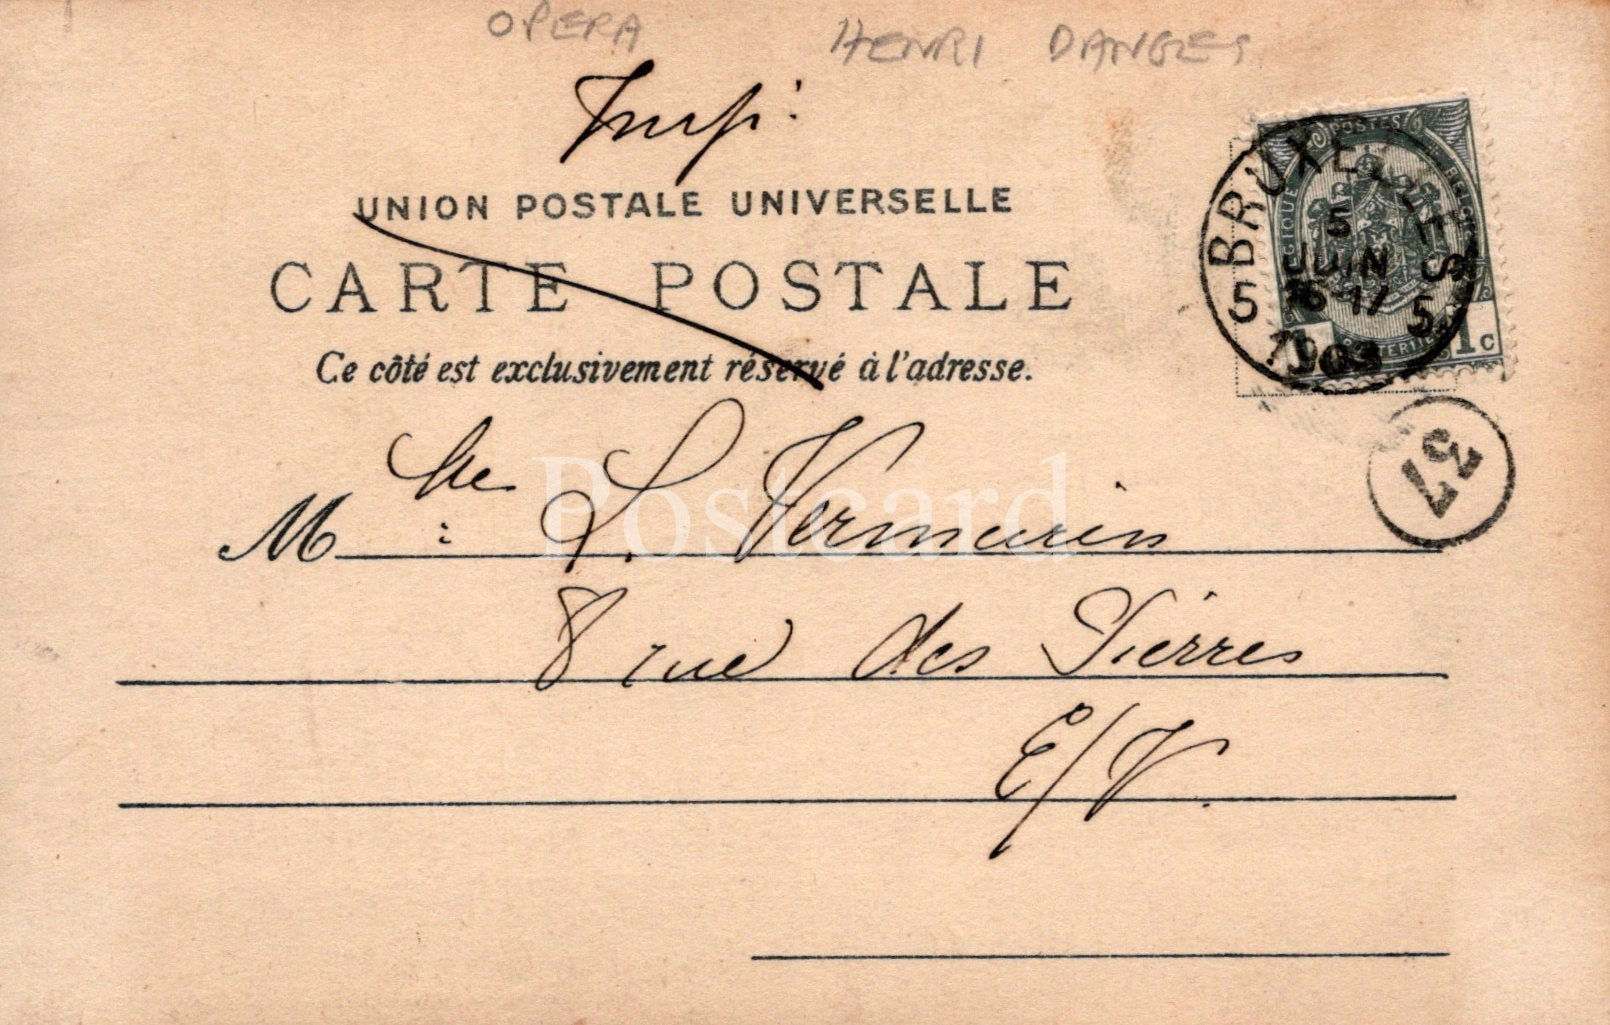 OPERA HENRI DANGES
Imp.
UNION POSTALE UNIVERSELLE
CARTE POSTALE
Ce côté est exclusivement réservé à l'adresse.
Mlle L. Vermeiren
8 rue des Pierres
E/V.
POSTES
BELGIQUE
1c
BRUXELLES
5
JUIN
16-17
1903
5 5
37
Postcard